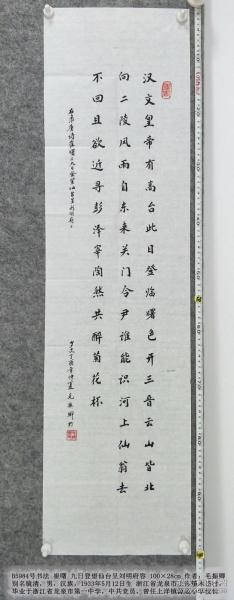 汉文皇帝有高台此日登临曙色开三晋云山皆北
向二陵风雨自东来关门令尹谁能识河上仙翁去
不回且欲近寻彭泽宰陶然共醉菊花杯
右录唐诗崔曙之九日登望仙台呈刘明府
B5984号书法 崔曙 九日登望仙台呈刘明府容 100×28cm 作者：毛振卿
别名镜清，男，汉族，1933年5月12日生 浙江省龙泉市
毕业于浙江省龙泉市第一中学，中共党员，曾任上洋镇